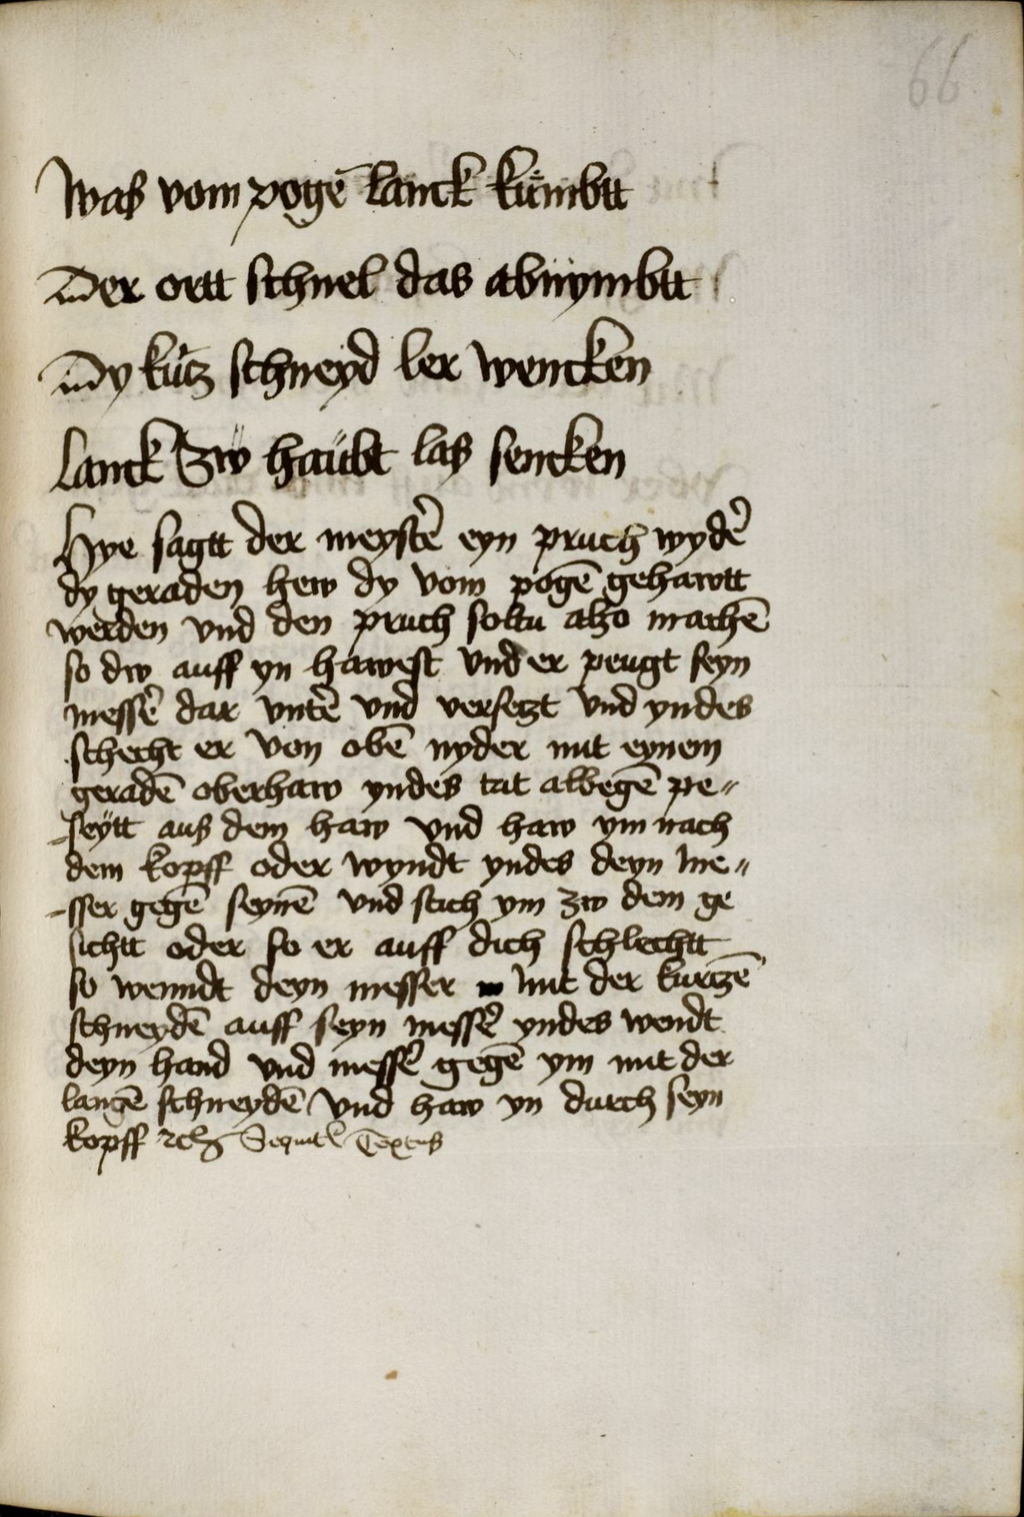 66
Was vom pogē lanck kümbtt
Der ortt schnel das abnymbtt
Dy kürtz schneyd ler wencken
Lanck zw haübt las sencken
Hye sagtt der meystē eyn pruch wydē
dy geraden hew dy vom pogē gehawtt
werden vnd den pruch soltu also machē
so dw auff yn hawest vnd er peugt seyn
messē dar vntē vnd versetzt vnd yndes
schecht er von obē nyder mit eynem
geradē oberhaw yndes trit albegē pe-
-seytt aus dem haw vnd haw ym nach
dem kopff oder wyndt yndes deyn me-
-sser gegē seynē vnd stich ym zw dem ge
sichtt oder so er auff dich schlechtt
so wenndt deyn messer mit der kurtzē
schneydē auff seyn messē yndes wendt
deyn hand vnd messē gegē ym mit der
langē schneydē vnd haw yn durch seyn
kopff Sequit Textus